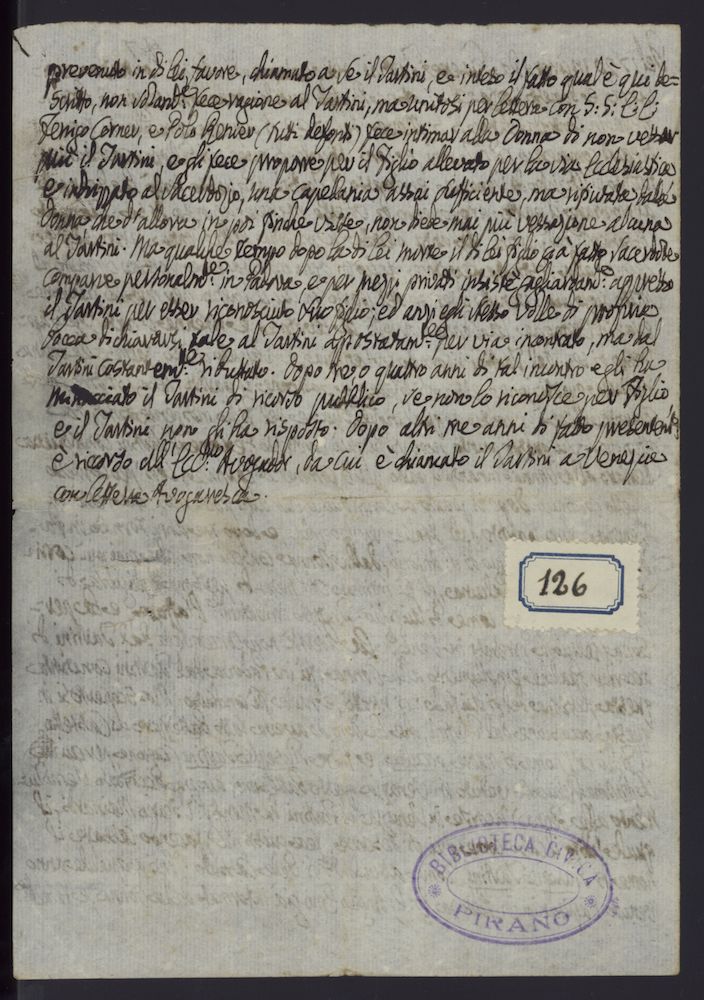 prevenuto in di lei favore, chiamato a se il Tartini, e inteso il fatto qual è qui de=
scritto, non solam.te fece ragione al Tartini, ma unitosi per lettere con S: S: E: E:
Ferigo Corner, e Polo Renier (tutti defonti) fece intimar alla Donna di non vessar
più il Tartini, e gli fece proporre per il figlio allevato per la via Ecclesiastica
e int al Sacerdozio, una Capelania assai sufficiente, ma rifiutata dalla
Donna, che d'allora in poi finche visse, non diede mai più vessazione alcuna
al Tartini. Ma qualche tempo dopo la di lei morte il di lei figlio già fatto Sacerdote
comparve personalm.te in Padova, e per mezzi privati insistè aggressò
il Tartini per esser riconosciuto suo figlio; ed anzi egli stesso volle di propria
bocca dichiararsi tale al Tartini per via incontrato, ma dal
Tartini costantem.te ributtato. Dopo tre o quattro anni di tal incontro egli ha
minacciato il Tartini di ricorso publico, se non lo riconosce per figlio
e il Tartini non gli ha risposto. Dopo altri tre anni di fatto
è ricorso all' Ecc.mo Avogador, da cui è chiamato il Tartini a Venezia
con lettera Avogaresca.
126
BIBLIOTECA CIVICA
PIRANO